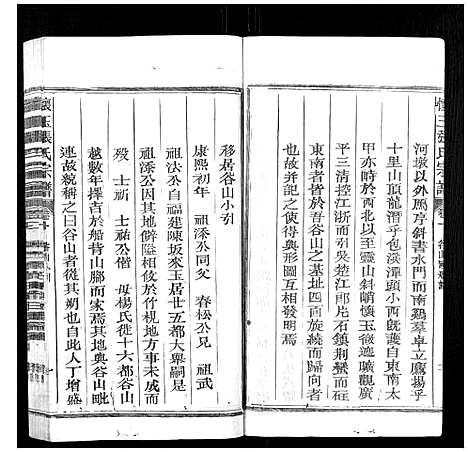 懷玉張氏宗譜
河墩以外鴈亭斜書水門而南鷄羣卓立鷹揚乎
十里山頂龍潛乎包湵潭頭小西旣護自東南太
甲亦峙於西北天藍斜峭懷玉嶶遮曠觀廣
平三清控江浙而引吳楚江郎片石鎮荆蠻而
東南者皆於谷山之基址四向環旋而歸向者
也誌之幾使得與形圖互相發明云
移居谷山小引
康熙初年 祖添公同父 春松公兄 祖武
祖法公自福建陳坂來玉居廿五都大舉嗣是
祖添公因其地僻隘移於竹梘地方事未成而
歿 士祈 士祐公偕 母楊氏徙十六都谷山
越數年擇吉於船背山腳而家焉其地與谷山毗
連故統稱之曰谷山者從其朔也自此人丁增盛
懷玉張氏宗譜